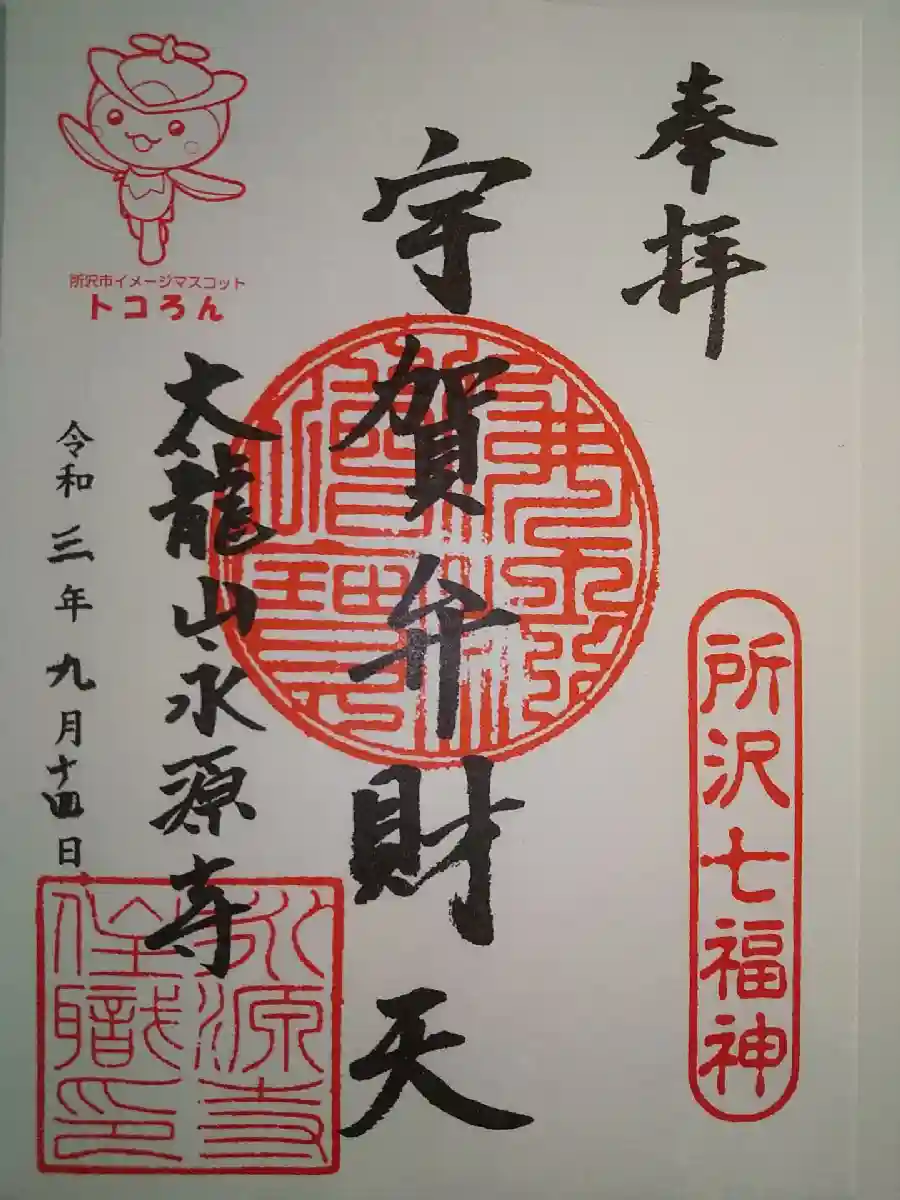 奉拝
所沢七福神
宇賀弁財天
太龍山永源寺
永源寺
住職印
令和三年九月十四日
所沢市イメージマスコット
トコろん